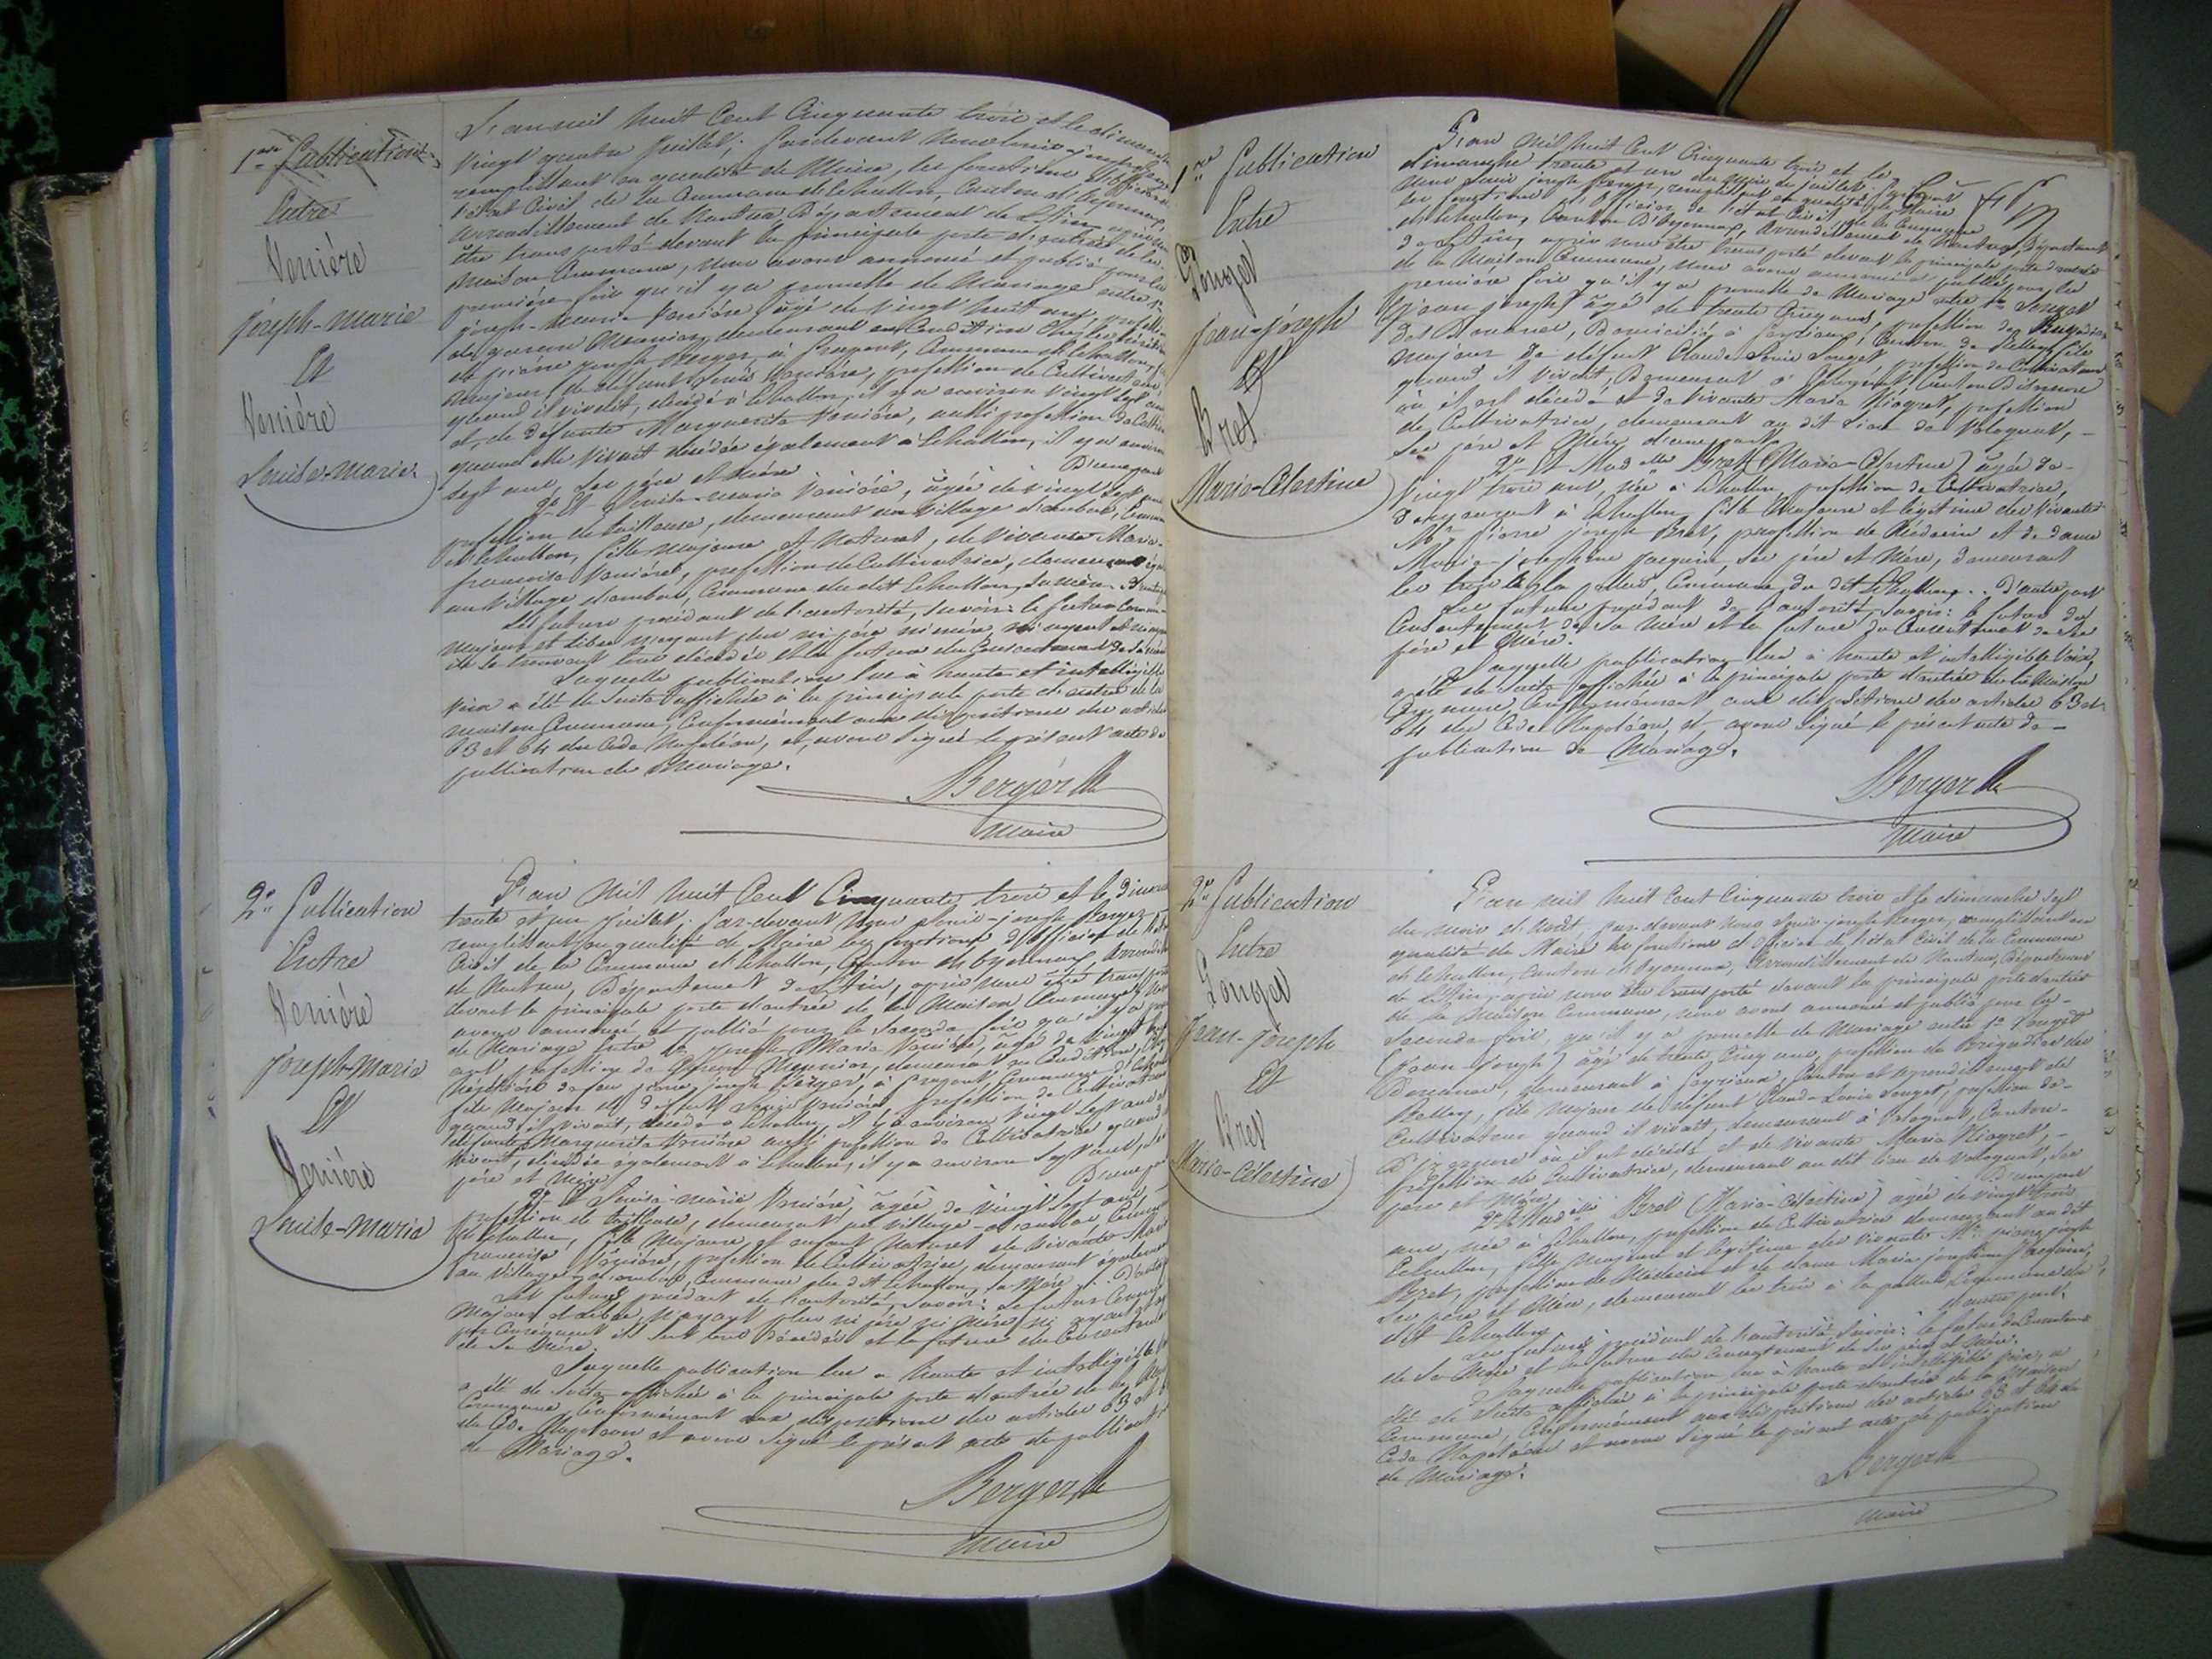 1ere Publication
Entre
Venière
joseph-marie
Et
Venière
Louise-marie
L'an mil huit Cent Cinquante trois et le dimanche
vingt quatre juillet, Pardevant Nous Louis-joseph
remplissant en qualité de Maire, les fonctions d'officier de
l'état Civil de la Commune d'Echallon, Canton d'Oyonnax,
arrondissement de Nantua Département de l'Ain, après nous
être transporté devant la principale porte d'entrée de la
maison Commune, nous avons annoncé et publié pour la
première fois qu'il y a promesse de Mariage entre 1°
joseph-marie Venière âgé de vingt huit ans, profession
de garçon Meunier, demeurant en Condition chez les héritiers
de pierre joseph Berger, à Commune d'Echallon, fils
majeur de défunt Louis Venière, profession de Cultivateur
quand il vivait, décédé à Echallon, il y a environ vingt sept ans
et de défunte Marguerite Venière, aussi profession de Cultiv
quand elle vivait décédée également à Echallon, il y a environ
sept ans, ses père et mère D'une part
2° Et Louise-marie Venière, âgée de vingt sept ans
profession de tailleuse, demeurant au village d'
d'Echallon, fille majeure et Naturel, de vivante Marie-
françoise Venière, profession de Cultivatrice, demeurant
au village Commune du dit Echallon, sa mère
Les futurs procédant de l'autorité, savoir: le futur Comme
majeur et libre n'ayant plus ni père ni mère, ni ayeul
se trouvant tous décédés et la future du Consentement de sa mère
Laquelle publication lue à haute et intelligible
voix a été de suite affichée à la principale porte d'entrée de la
maison Commune, Conformément aux dispositions des articles
63 et 64 du Code Napoléon, et avons signé le présent acte de
publication de Mariage.
Berger
Maire
2e Publication
Entre
Venière
Joseph-Marie
Et
Venière
Louise-Marie
L'an Mil huit Cent Cinquante trois et le Dimanche
trente et un juillet; Par-devant Nous Louis-joseph Berger
remplissant en qualité de Maire les fonctions d'officier de l'état
Civil de la Commune d'Echallon, Canton d'Oyonnax, arrondiss
de Nantua, Département de l'Ain, après nous être transporté
devant la principale porte d'entrée de la Maison Commune, Nous
avons annoncé et publié pour la seconde fois qu'il y a
de Mariage Entre 1° joseph Marie Venière, âgé de vingt huit
ans, profession de garçon Meunier, demeurant en Condition chez
héritiers de feu pierre joseph Berger, à Commune d'Echallon
fils Majeur de défunt Louis Venière, profession de Cultivateur
quand il vivait, décédé à Echallon, il y a environ vingt sept ans
défunte Marguerite Venière aussi profession de Cultivatrice quand
vivait, décédée également à Echallon, il y a environ sept ans, ses
père et Mère D'une part
2° Et Louise-marie Venière, âgée de vingt sept ans
profession de tailleuse, demeurant au village
d'Echallon, fille Majeure et enfant Naturel de vivante Marie
françoise Venière, profession de Cultivatrice, demeurant également
au village Commune du dit Echallon, sa Mère
Les futurs procédant de l'autorité, savoir: le futur Comme
Majeur et libre, N'ayant plus ni père ni Mère, ni ayeul
par Conséquent ils sont tous décédés et la future du Consentement
de sa Mère.
Laquelle publication lue à haute et intelligible
a été de suite affichée à la principale porte d'entrée de la
Commune, Conformément aux dispositions des articles 63 et
du Code Napoléon et avons signé le présent acte de publication
de Mariage.
Berger
Maire
1re Publication
Entre
Jean-joseph
Et
Bret
Marie-Célestine
L'an Mil huit Cent Cinquante trois et le
dimanche trente et un du Mois de juillet, Par devant
Nous Louis joseph Berger, remplissant en qualité de Maire
les fonctions d'officier de l'état Civil de la Commune
d'Echallon, Canton D'Oyonnax, arrondissement de Nantua, Département
de l'Ain, après nous être transporté devant la principale porte d'entrée
de la Maison Commune, nous avons annoncé et publié pour la
première fois qu'il y a promesse de Mariage entre 1°
(jean-joseph) âgé de trente Cinq ans, profession de Brigadier
des Douanes, Domicilié à Canton de Belley, fils
majeur de défunt Claude Louis profession de Cultivateur
quand il vivait, Demeurant à Canton D'Izernore
où il est décédé et de vivante Marie profession
de Cultivatrice, demeurant au dit lieu de Volognat,
ses père et Mère, d'une part
2° Et Madelle Bret (Marie-Célestine) âgée de
vingt trois ans, née à Echallon, profession de Cultivatrice,
demeurant à Echallon, fille Majeure et légitime des vivants
Mr pierre joseph Bret, profession de Médecin et de dame
Marie-joséphine Jacquin, ses père et Mère, demeurant
les trois à la Commune du dit Echallon .. D'autre part
Les futurs procédant de l'autorité, savoir: le futur du
Consentement de sa Mère et la future du Consentement de ses
père et Mère.
Laquelle publication lue à haute et intelligible voix,
a été de suite affichée à la principale porte d'entrée de la Maison
Commune, Conformément aux dispositions des articles 63 et
64 du Code Napoléon, et avons signé le présent acte de
publication de Mariage.
Berger
Maire
2e Publication
Entre
Jean-joseph
Et
Bret
Marie-Célestine
L'an mil huit Cent Cinquante trois et le dimanche sept
du mois d'août, par devant nous Louis-joseph Berger, remplissant en
qualité de Maire les fonctions d'officier de l'état Civil de la Commune
d'Echallon, Canton d'Oyonnax, Arrondissement de Nantua, Département
de l'Ain, après nous être transporté devant la principale porte d'entrée
de la Maison Commune, nous avons annoncé et publié pour la
seconde fois, qu'il y a promesse de Mariage entre 1°
(Jean-Joseph) âgé de trente Cinq ans, profession de Brigadier des
Douanes, demeurant à Canton et arrondissement de
Belley, fils Majeur de défunt Claude-Louis profession de
Cultivateur quand il vivait, demeurant à Volognat, Canton
D'Izernore où il est décédé et de vivante Marie
profession de Cultivatrice, demeurant au dit lieu de Volognat, ses
père et Mère D'une part
2° Et Madelle Bret (Marie-Célestine) âgée de vingt trois
ans, née à Echallon, profession de Cultivatrice demeurant au dit
Echallon, fille Majeure et légitime des vivants Mr pierre joseph
Bret, profession de Médecin et de dame Marie joséphine Jacquin,
ses père et Mère, demeurant les trois à la Commune du
dit Echallon D'autre part.
Les futurs procédant de l'autorité, savoir: le futur du Consentement
de sa Mère et la future du Consentement de ses père et Mère.
Laquelle publication lue à haute et intelligible voix, a
été de suite affichée à la principale porte d'entrée de la Maison
Commune, Conformément aux dispositions des articles 63 et 64 du
Code Napoléon et avons signé le présent acte de publication
de Mariage.
Berger
Maire